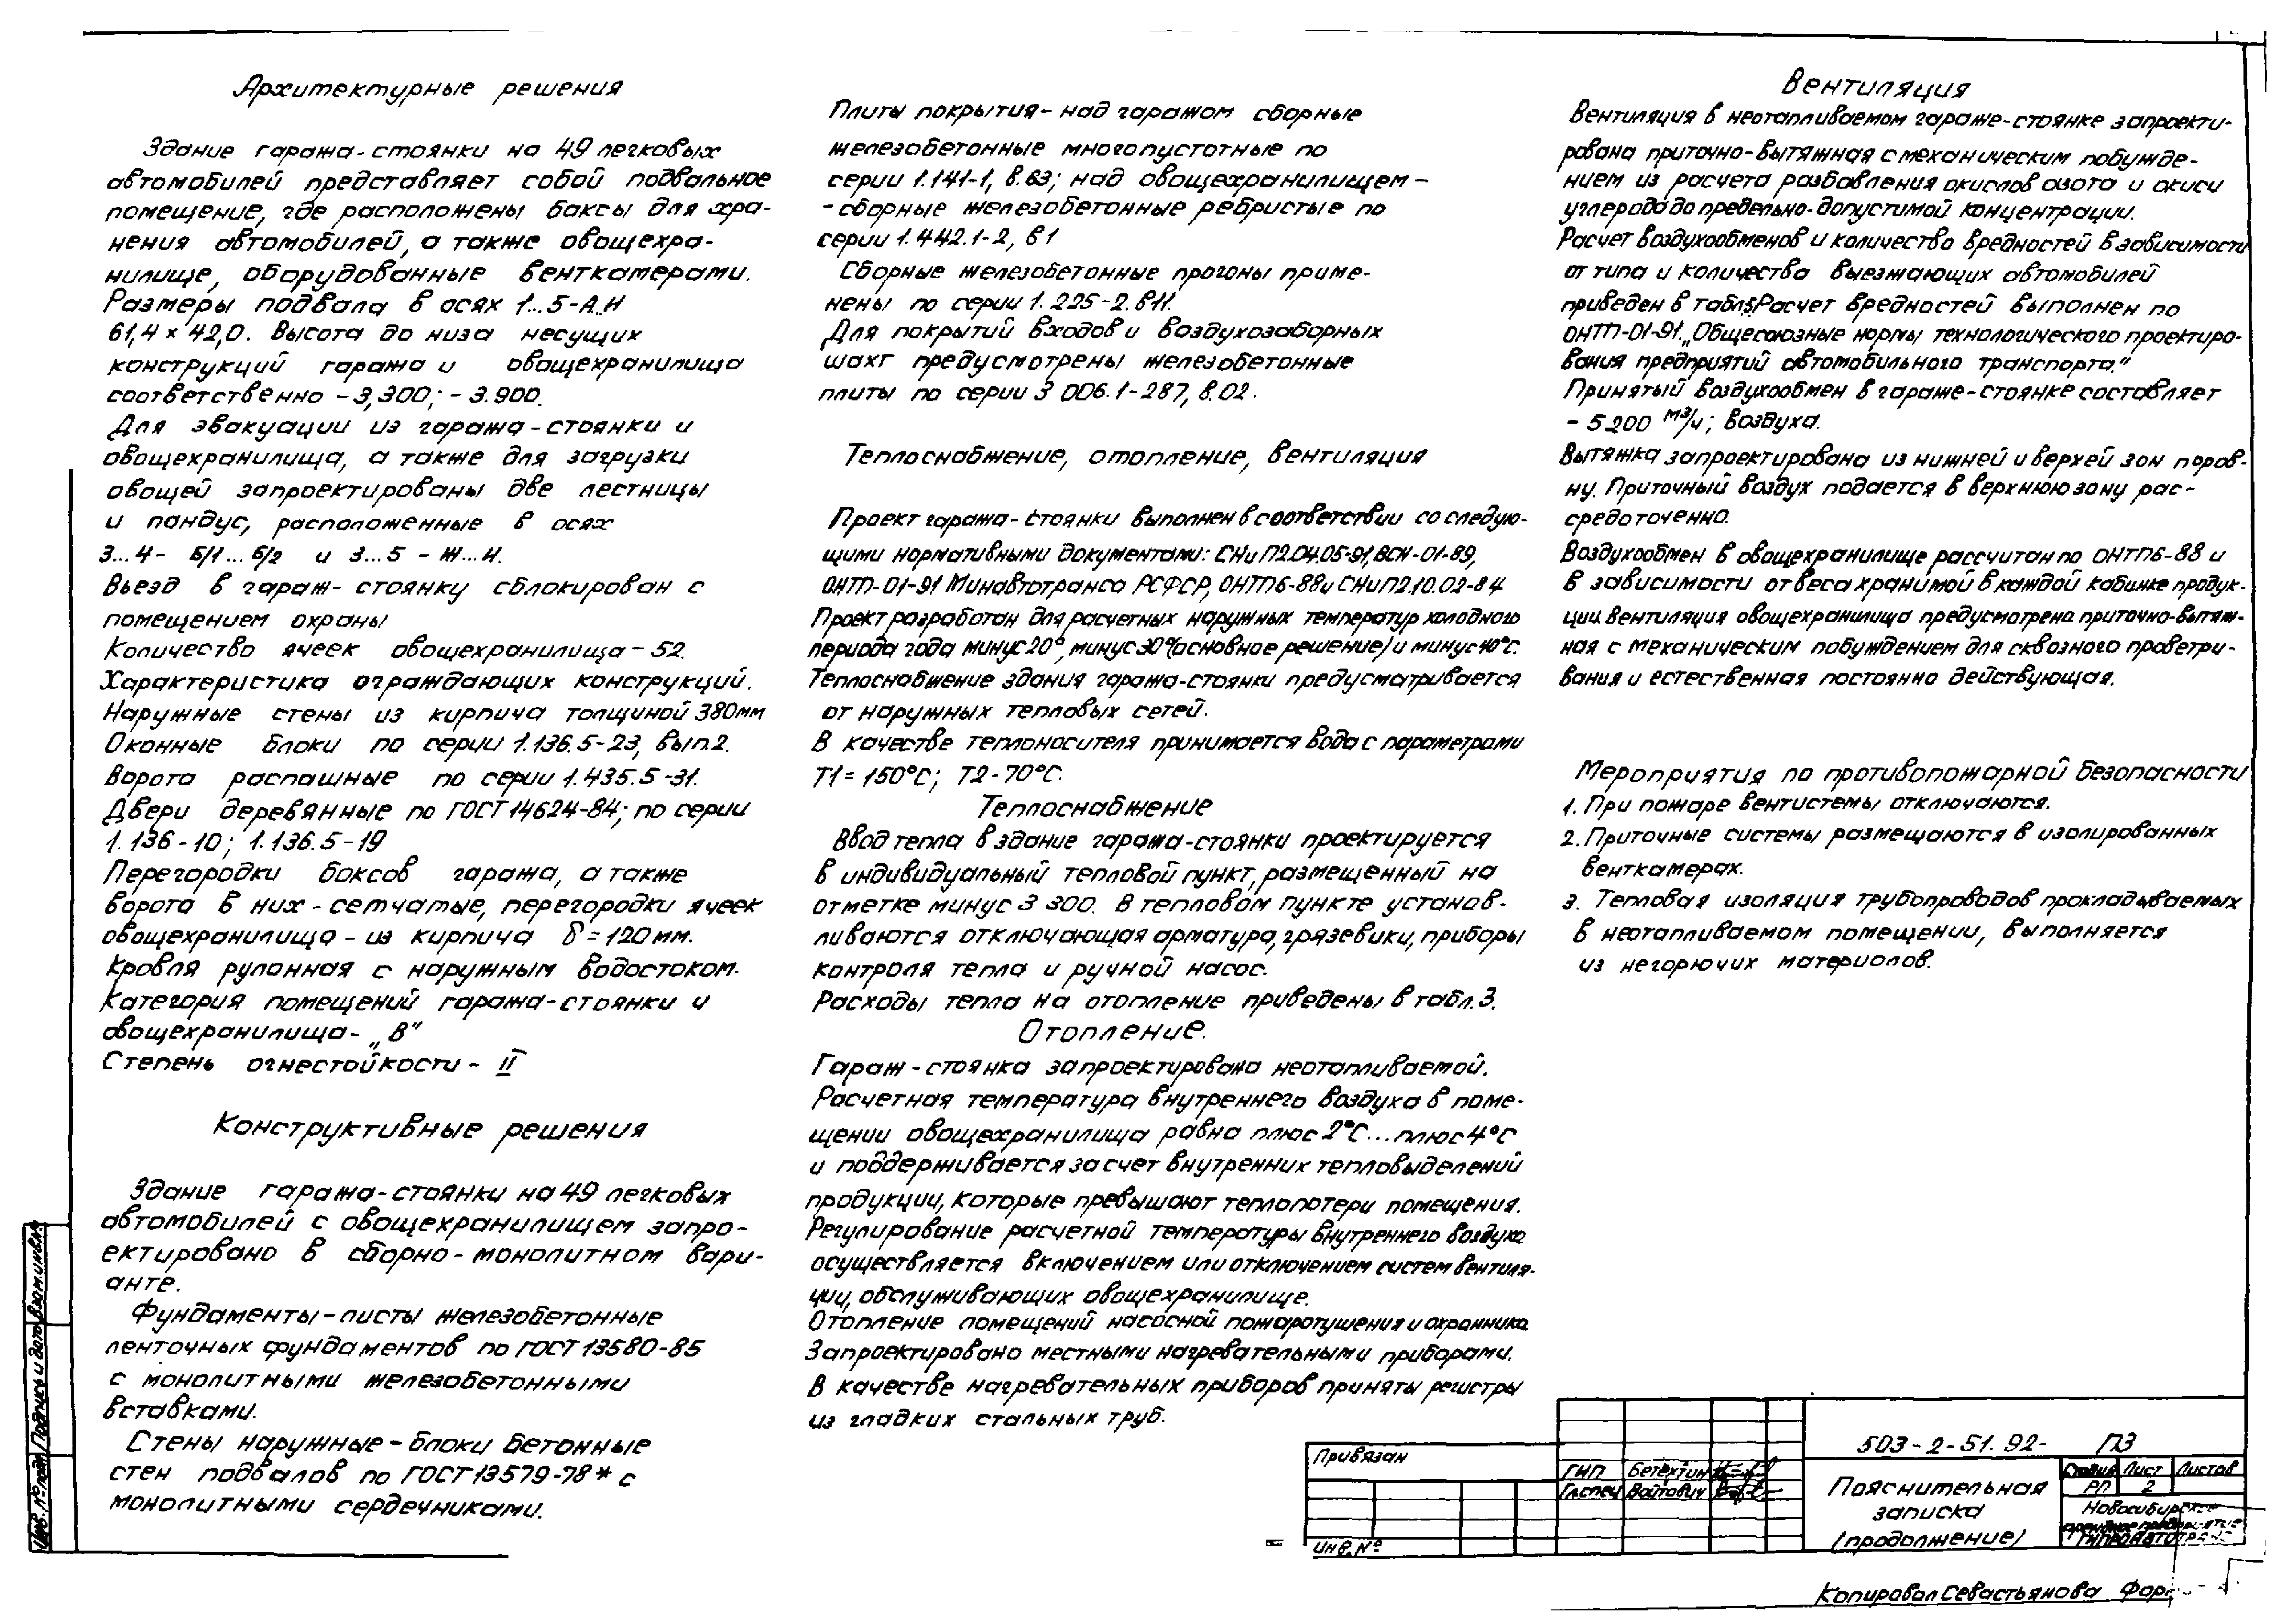 Архитектурные решения
Здание гаража-стоянки на 49 легковых
автомобилей представляет собой подвальное
помещение, где расположены баксы для хра-
нения автомобилей, а также овощехра-
нилище, оборудованные венткамерами.
Размеры подвала в осях 1...5-А..И
61,4 × 42,0. Высота до низа несущих
конструкций гаража и овощехранилища
соответственно -3,300; -3.900.
Для эвакуации из гаража-стоянки и
овощехранилища, а также для загрузки
овощей запроектированы две лестницы
и пандус, расположенные в осях
3...4- Б/1...Б/2 и 3...5 - Ж...И.
Въезд в гараж-стоянку сблокирован с
помещением охраны
Количество ячеек овощехранилища - 52.
Характеристика ограждающих конструкций.
Наружные стены из кирпича толщиной 380мм
Оконные блоки по серии 1.136.5-23, вып.2.
Ворота распашные по серии 1.435.5-31.
Двери деревянные по ГОСТ 14624-84; по серии
1.136-10; 1.136.5-19
Перегородки боксов гаража, а также
ворота в них - сетчатые, перегородки ячеек
овощехранилища - из кирпича δ=120мм.
Кровля рулонная с наружным водостоком.
Категория помещений гаража-стоянки и
овощехранилища- „В"
Степень огнестойкости - II
Конструктивные решения
Здание гаража-стоянки на 49 легковых
автомобилей с овощехранилищем запро-
ектировано в сборно-монолитном вари-
анте.
Фундаменты - листы железобетонные
ленточных фундаментов по ГОСТ 13580-85
с монолитными железобетонными
вставками.
Стены наружные - блоки бетонные
стен подвалов по ГОСТ 13579-78* с
монолитными сердечниками.
Плиты покрытия - над гаражом сборные
железобетонные многопустотные по
серии 1.141-1, в.63; над овощехранилищем -
- сборные железобетонные ребристые по
серии 1.442.1-2, в1
Сборные железобетонные прогоны приме-
нены по серии 1.225-2.в11.
Для покрытий входов и воздухозаборных
шахт предусмотрены железобетонные
плиты по серии 3 006.1-287, в.02.
Теплоснабжение, отопление, вентиляция
Проект гаража-стоянки выполнен в соответствии со следую-
щими нормативными документами: СНиП2.04.05-91, ВСН-01-89,
ОНТП-01-91 Минавтотранса РСФСР, ОНТП6-88и СНиП2.10.02-84
Проект разработан для расчетных наружных температур холодного
периода года минус 20°, минус 30°(основное решение) и минус 40°С.
Теплоснабжение здания гаража-стоянки предусматривается
от наружных тепловых сетей.
В качестве теплоносителя принимается вода с параметрами
Т1=150°С; Т2-70°С.
Теплоснабжение
Ввод тепла в здание гаража-стоянки проектируется
в индивидуальный тепловой пункт, размещенный на
отметке минус 3 300. В тепловом пункте устанав-
ливаются отключающая арматура, грязевики, приборы
контроля тепла и ручной насос.
Расходы тепла на отопление приведены в табл.3.
Отопление.
Гараж-стоянка запроектирована неотапливаемой.
Расчетная температура внутреннего воздуха в поме-
щении овощехранилища равна плюс 2°С...плюс 4°С
и поддерживается за счет внутренних тепловыделений
продукции, которые превышают теплопотери помещения.
Регулирование расчетной температуры внутреннего воздуха
осуществляется включением или отключением систем вентиля-
ции, обслуживающих овощехранилище.
Отопление помещений насосной пожаротушения и охранника
Запроектировано местными нагревательными приборами.
В качестве нагревательных приборов приняты регистры
из гладких стальных труб.
Вентиляция
Вентиляция в неотапливаемом гараже-стоянке запроекти-
рована приточно-вытяжная с механическим побужде-
нием из расчета разбавления окислов азота и окиси
углерода до предельно-допустимой концентрации.
Расчет воздухообменов и количество вредностей в зависимости
от типа и количества выезжающих автомобилей
приведен в табл5. Расчет вредностей выполнен по
ОНТП-01-91. „Общесоюзные нормы технологического проектиро-
вания предприятий автомобильного транспорта."
Принятый воздухообмен в гараже-стоянке составляет
- 5200 м3/ч; воздуха.
Вытяжка запроектирована из нижней и верхней зон поров-
ну. Приточный воздух подается в верхнюю зону рас-
средоточенно.
Воздухообмен в овощехранилище рассчитан по ОНТП6-88 и
в зависимости от веса хранимой в каждой кабинке продук-
ции Вентиляция овощехранилища предусмотрена приточно-вытяж-
ная с механическим побуждением для сквозного проветри-
вания и естественная постоянно действующая.
Мероприятия по противопожарной безопасности
1. При пожаре вентистемы отключаются.
2. Приточные системы размещаются в изолированных
венткамерах.
3. Тепловая изоляция трубопроводов прокладываемых
в неотапливаемом помещении, выполняется
из негорючих материалов.
Привязан
Инв.№
ГИП Бетехтин
Гл.спец Войтович
503-2-51.92- ПЗ
Пояснительная
записка
(продолжение)
Стадия Лист Листов
РП 2
Новосибирское
Гипроавтотранс
Копировал Севастьянова
Инв.№подл Подпись и дата Взам.инв.№